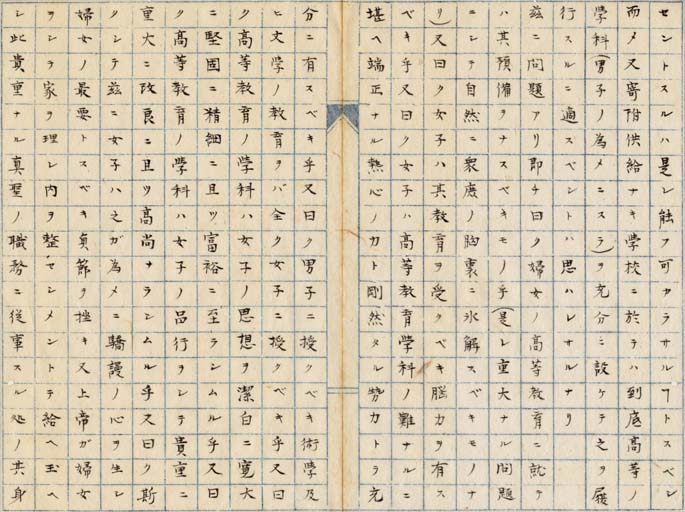 セントスルハ是レ能フ可カラサルヿトスベシ
而メ又寄附供給ナキ學校ニ於テハ到底高等ノ
學科(男子ノ為メニスラ)ヲ充分ニ設ケテ之ヲ履
行スルニ適スベシトハ思ハレサルナリ
茲ニ問題アリ即チ曰ク婦女ノ高等教育ニ就テ
ハ其預備ヲナスベキモノ乎(是レ重大ナル問題
ニシテ自然ニ衆庶ノ胸裏ニ氷解スベキモノナ
リ)又曰ク女子ハ其教育ヲ受クベキ脳力ヲ有ス
ベキ乎又曰ク女子ハ高等教育學科ノ難ナルニ
堪ヘ端正ナル熱心ノ力ト剛然タル勢力トラ充
分ニ有スベキ乎又曰ク男子ニ授クベキ術學及
ヒ文學ノ教育ヲバ全ク女子ニ授クベキ乎又曰
ク高等教育ノ學科ハ女子ノ思想ヲ潔白ニ寛大
ニ堅固ニ精細ニ且ツ富裕ニ至ラシムル乎又曰
ク高等教育ノ學科ハ女子ノ品行ヲシテ貴重ニ
重大ニ改良ニ且ツ高尚ナラシムル乎又曰ク斯
クシテ茲ニ女子ハ之ガ為メニ驕謾ノ心ヲ生シ
婦女ノ最要トスベキ貞節ヲ挫キ又上帝ガ婦女
ヲシテ家ヲ理レ内ヲ整セシメントテ給ヘ玉ヘ
シ此貴重ナル真聖ノ職務ニ従事スル処ノ共身